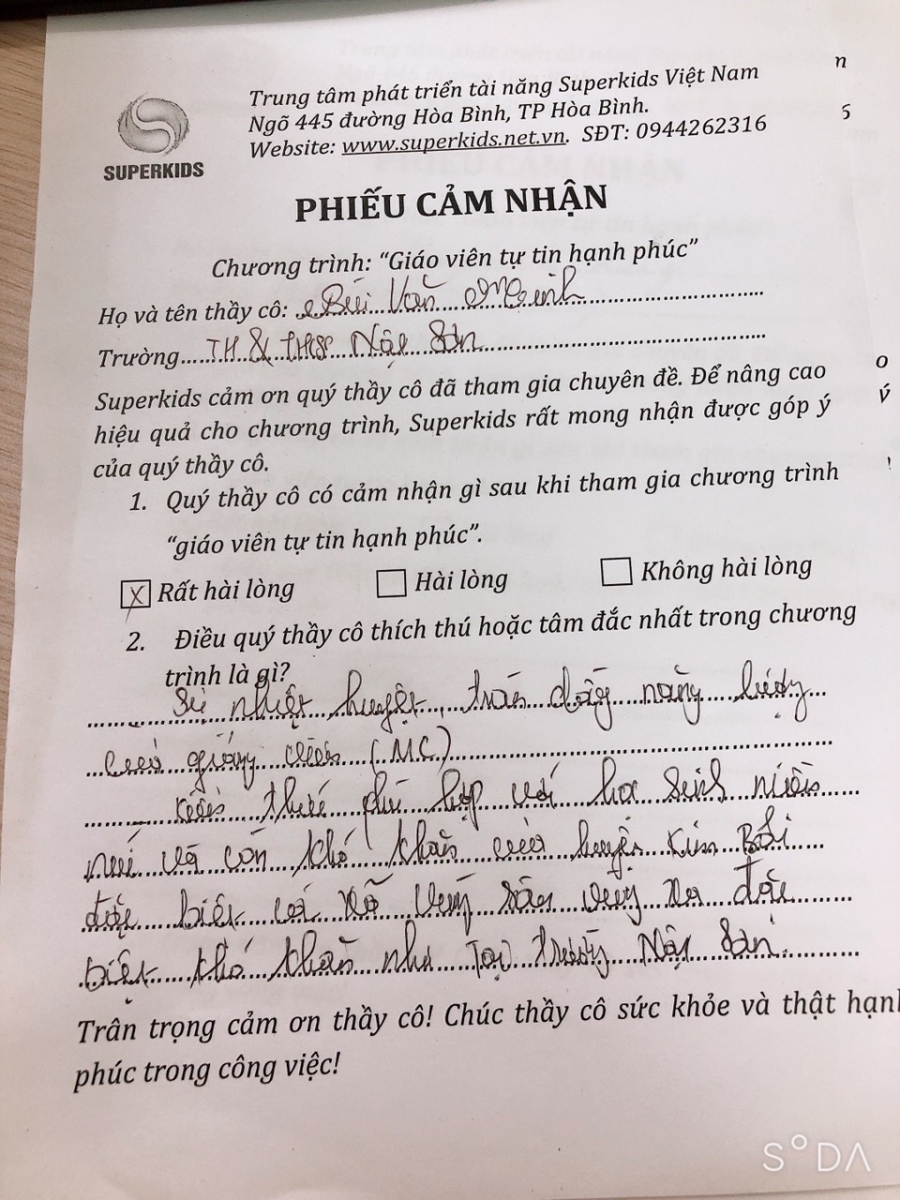 Trung tâm phát triển tài năng Superkids Việt Nam
Ngõ 445 đường Hòa Bình, TP Hòa Bình.
Website: www.superkids.net.vn. SĐT: 0944262316
SUPERKIDS
PHIẾU CẢM NHẬN
Chương trình: “Giáo viên tự tin hạnh phúc”
Họ và tên thầy cô: Bùi Văn Minh
Trường TH & THCS Nật Sơn
Superkids cảm ơn quý thầy cô đã tham gia chuyên đề. Để nâng cao
hiệu quả cho chương trình, Superkids rất mong nhận được góp ý
của quý thầy cô.
1. Quý thầy cô có cảm nhận gì sau khi tham gia chương trình
“giáo viên tự tin hạnh phúc”.
X Rất hài lòng Hài lòng Không hài lòng
2. Điều quý thầy cô thích thú hoặc tâm đắc nhất trong chương
trình là gì?
Sự nhiệt huyết, tràn đầy năng lượng
của giảng viên (MC)
Kiến thức phù hợp với học sinh miền
núi và còn khó khăn của huyện Kim Bôi
đặc biệt cá xã vùng sâu vùng xa đặc
biệt khó khăn như Tại trường Nật Sơn.
Trân trọng cảm ơn thầy cô! Chúc thầy cô sức khỏe và thật hạnh
phúc trong công việc!
n
5
o
ý
!
SODA